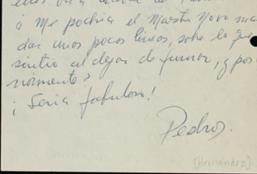 ó Me podría el Maestro Novo man
das unos pocos líneas, sobre lo que
sintió al dejar de fumar, y pos
riormente?
¡Sería fabuloso!
Pedro.
(Hernández)